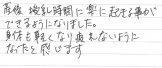 産後 授乳時間に楽に起きる事が
できるようになりました。
身体も軽くなり疲れないように
なったと感じます